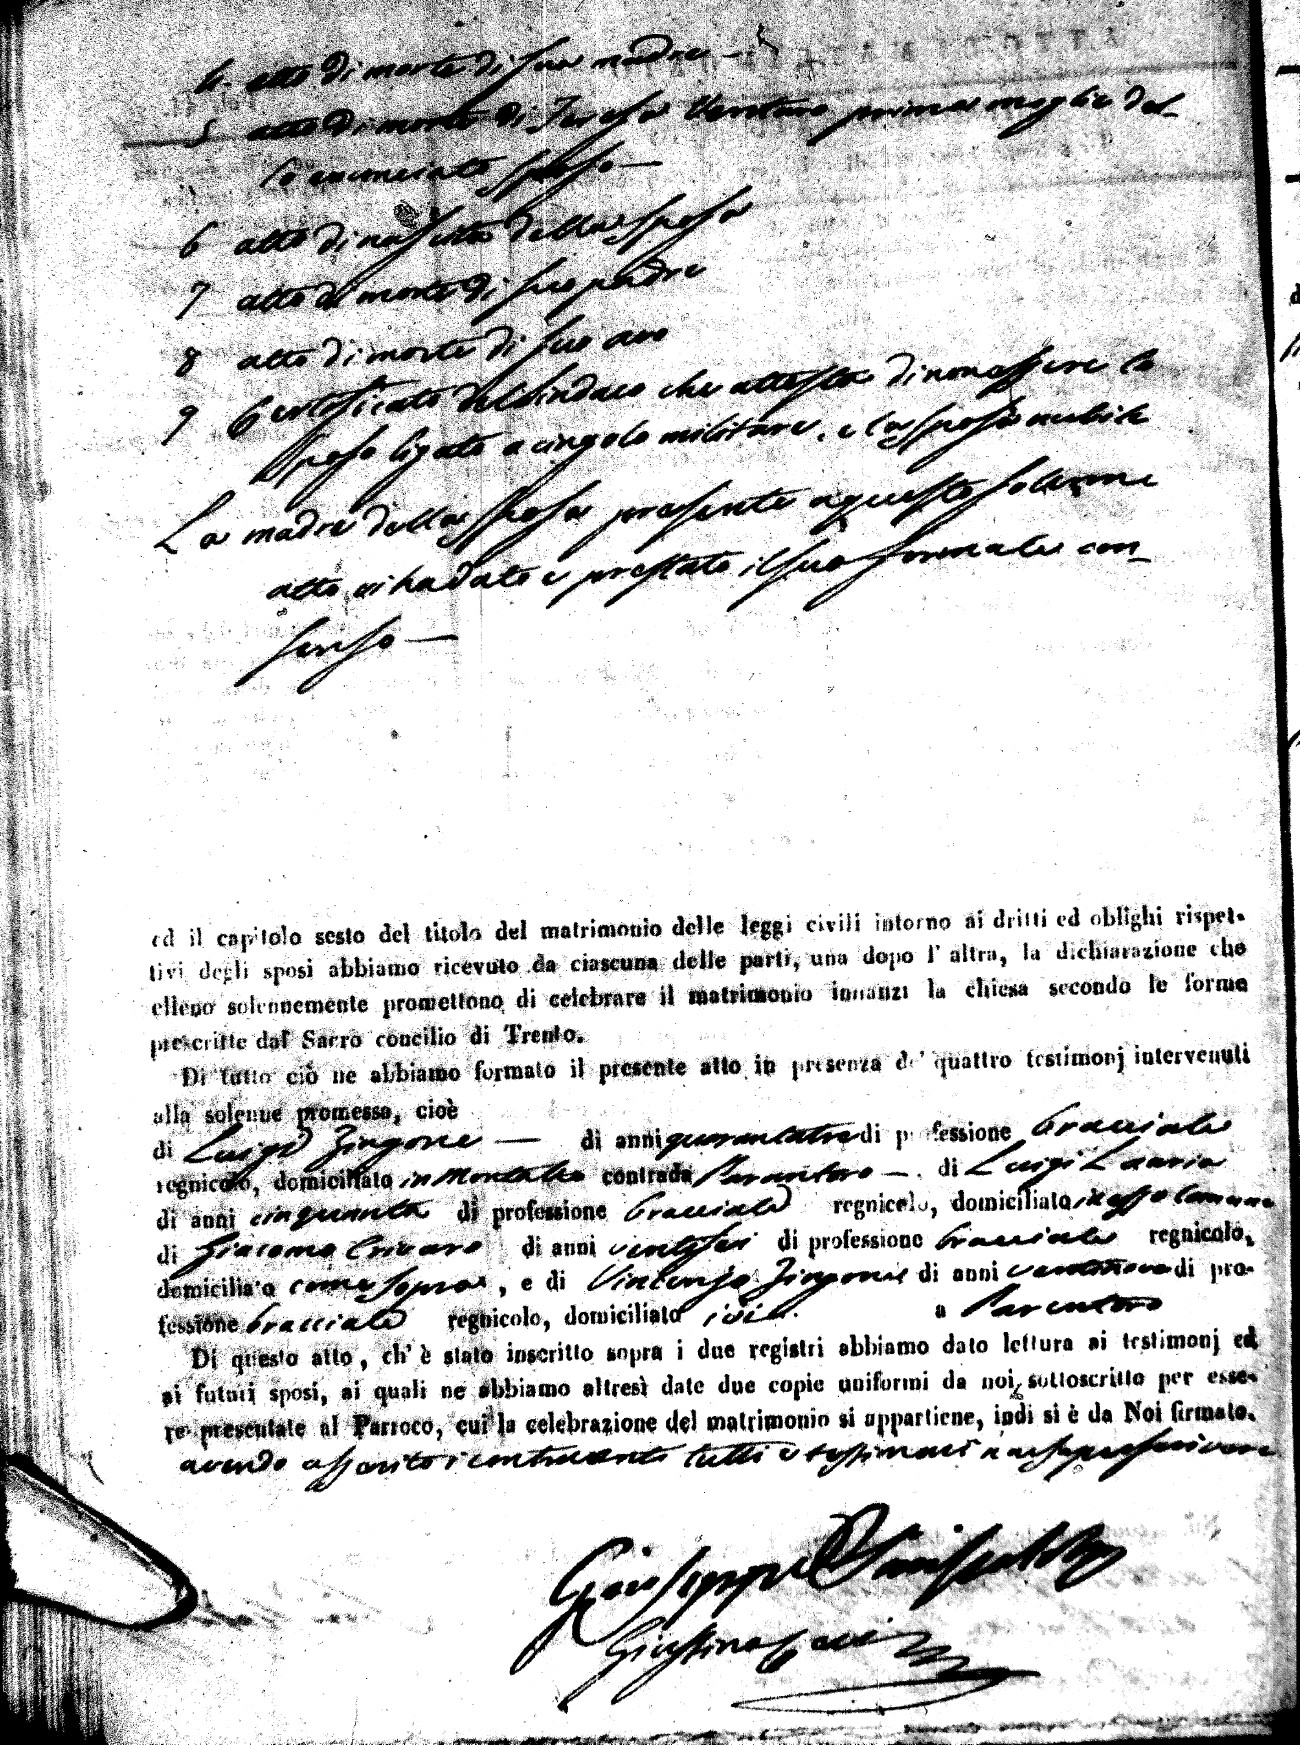 4. atto di morte di sua madre —
5 atto di morte di Teresa Venturo prima moglie del-
lo enunciato sposo —
6 atto di nascita della sposa
7 atto di morte di suo padre
8 atto di morte di suo avo
9 Certificato del Sindaco che attesta di non essere lo
sposo ligato a cingolo militare, e la sposa nubile
La madre della sposa presente a questo solenne
atto vi ha dato e prestato il suo formale con-
senso —
ed il capitolo sesto del titolo del matrimonio delle leggi civili intorno ai dritti ed oblighi rispet-
tivi degli sposi abbiamo ricevuto da ciascuna delle parti, una dopo l' altra, la dichiarazione che
elleno solennemente promettono di celebrare il matrimonio innanzi la chiesa secondo le forme
prescritte dal Sacro concilio di Trento.
Di tutto ciò ne abbiamo formato il presente atto in presenza de' quattro testimonj intervenuti
alla solenne promessa, cioè
di Luigi Zingone — di anni quarantatre di professione bracciale
regnicolo, domiciliato in Montalto contrada Parantoro — . di Luigi
di anni cinquanta di professione bracciale regnicolo, domiciliato in esso Comune
di Giacomo Crivaro di anni ventisei di professione bracciale regnicolo,
domiciliato come sopra , e di Vincenzo Zingone di anni ventinove di pro-
fessione bracciale regnicolo, domiciliato ivi. a Parentoro
Di questo atto, ch' è stato inscritto sopra i due registri abbiamo dato lettura ai testimonj ed
ai futuri sposi, ai quali ne abbiamo altresì date due copie uniformi da noi sottoscritto per esse-
re presentate al Parroco, cui la celebrazione del matrimonio si appartiene, indi si è da Noi firmato.
avendo asserito i contraenti tutti e testimoni non saper scrivere
Giuseppe
Giustino